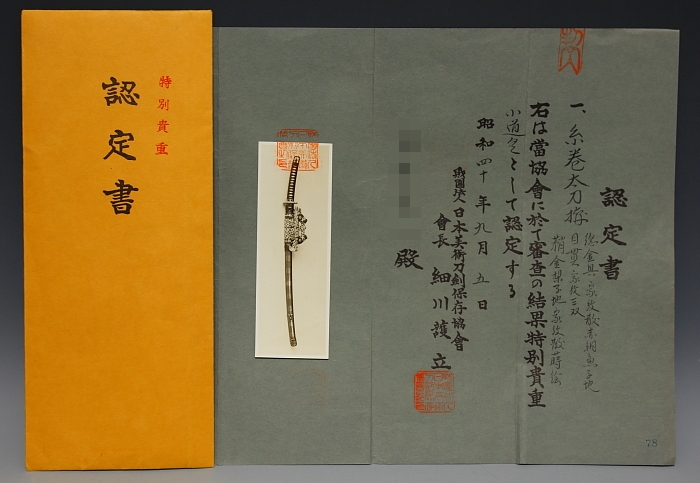 特別貴重
認定書
認定書
一、糸巻太刀拵
総金具家紋散赤銅魚子地
目貫家紋三双
鞘金梨子地家紋散蒔絵
右は當協會に於て審査の結果特別貴重
小道具として認定する
昭和四十年九月五日
財團法人日本美術刀劍保存協會
會長 細川護立
殿
78